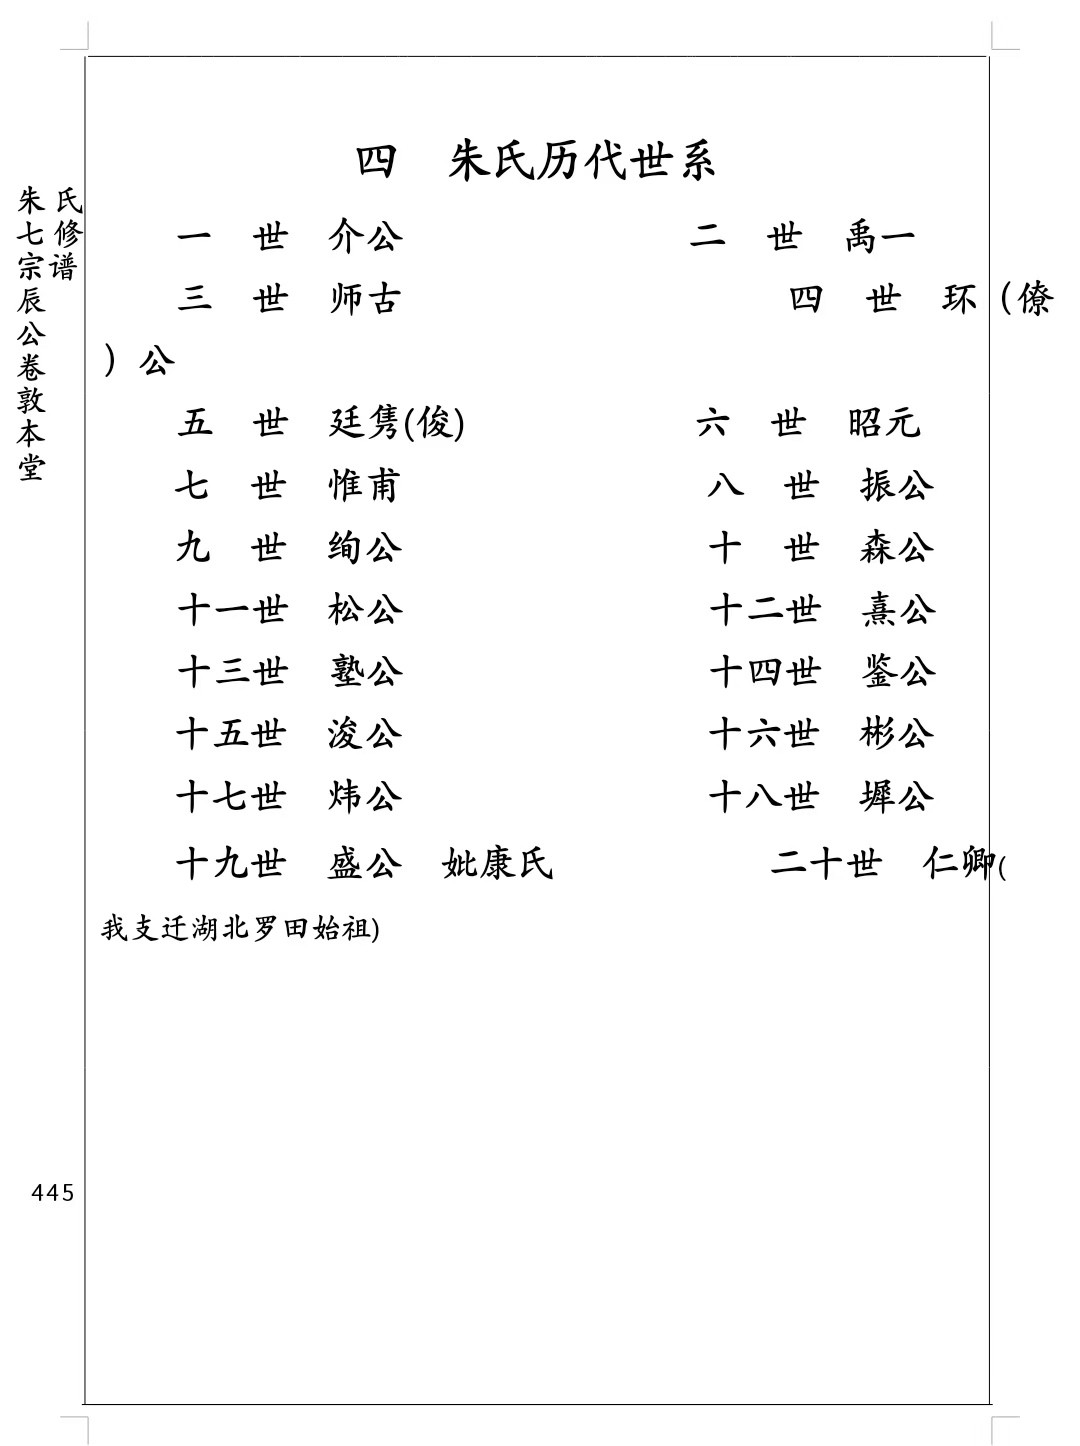 四　朱氏历代世系
一　世　介公　二　世　禹一
三　世　师古　四　世　环（僚
）公
五　世　廷隽(俊)　六　世　昭元
七　世　惟甫　八　世　振公
九　世　绚公　十　世　森公
十一世　松公　十二世　熹公
十三世　塾公　十四世　鉴公
十五世　浚公　十六世　彬公
十七世　炜公　十八世　墀公
十九世　盛公　妣康氏　二十世　仁卿(
我支迁湖北罗田始祖)
朱七宗辰公卷敦本堂
氏修谱
445